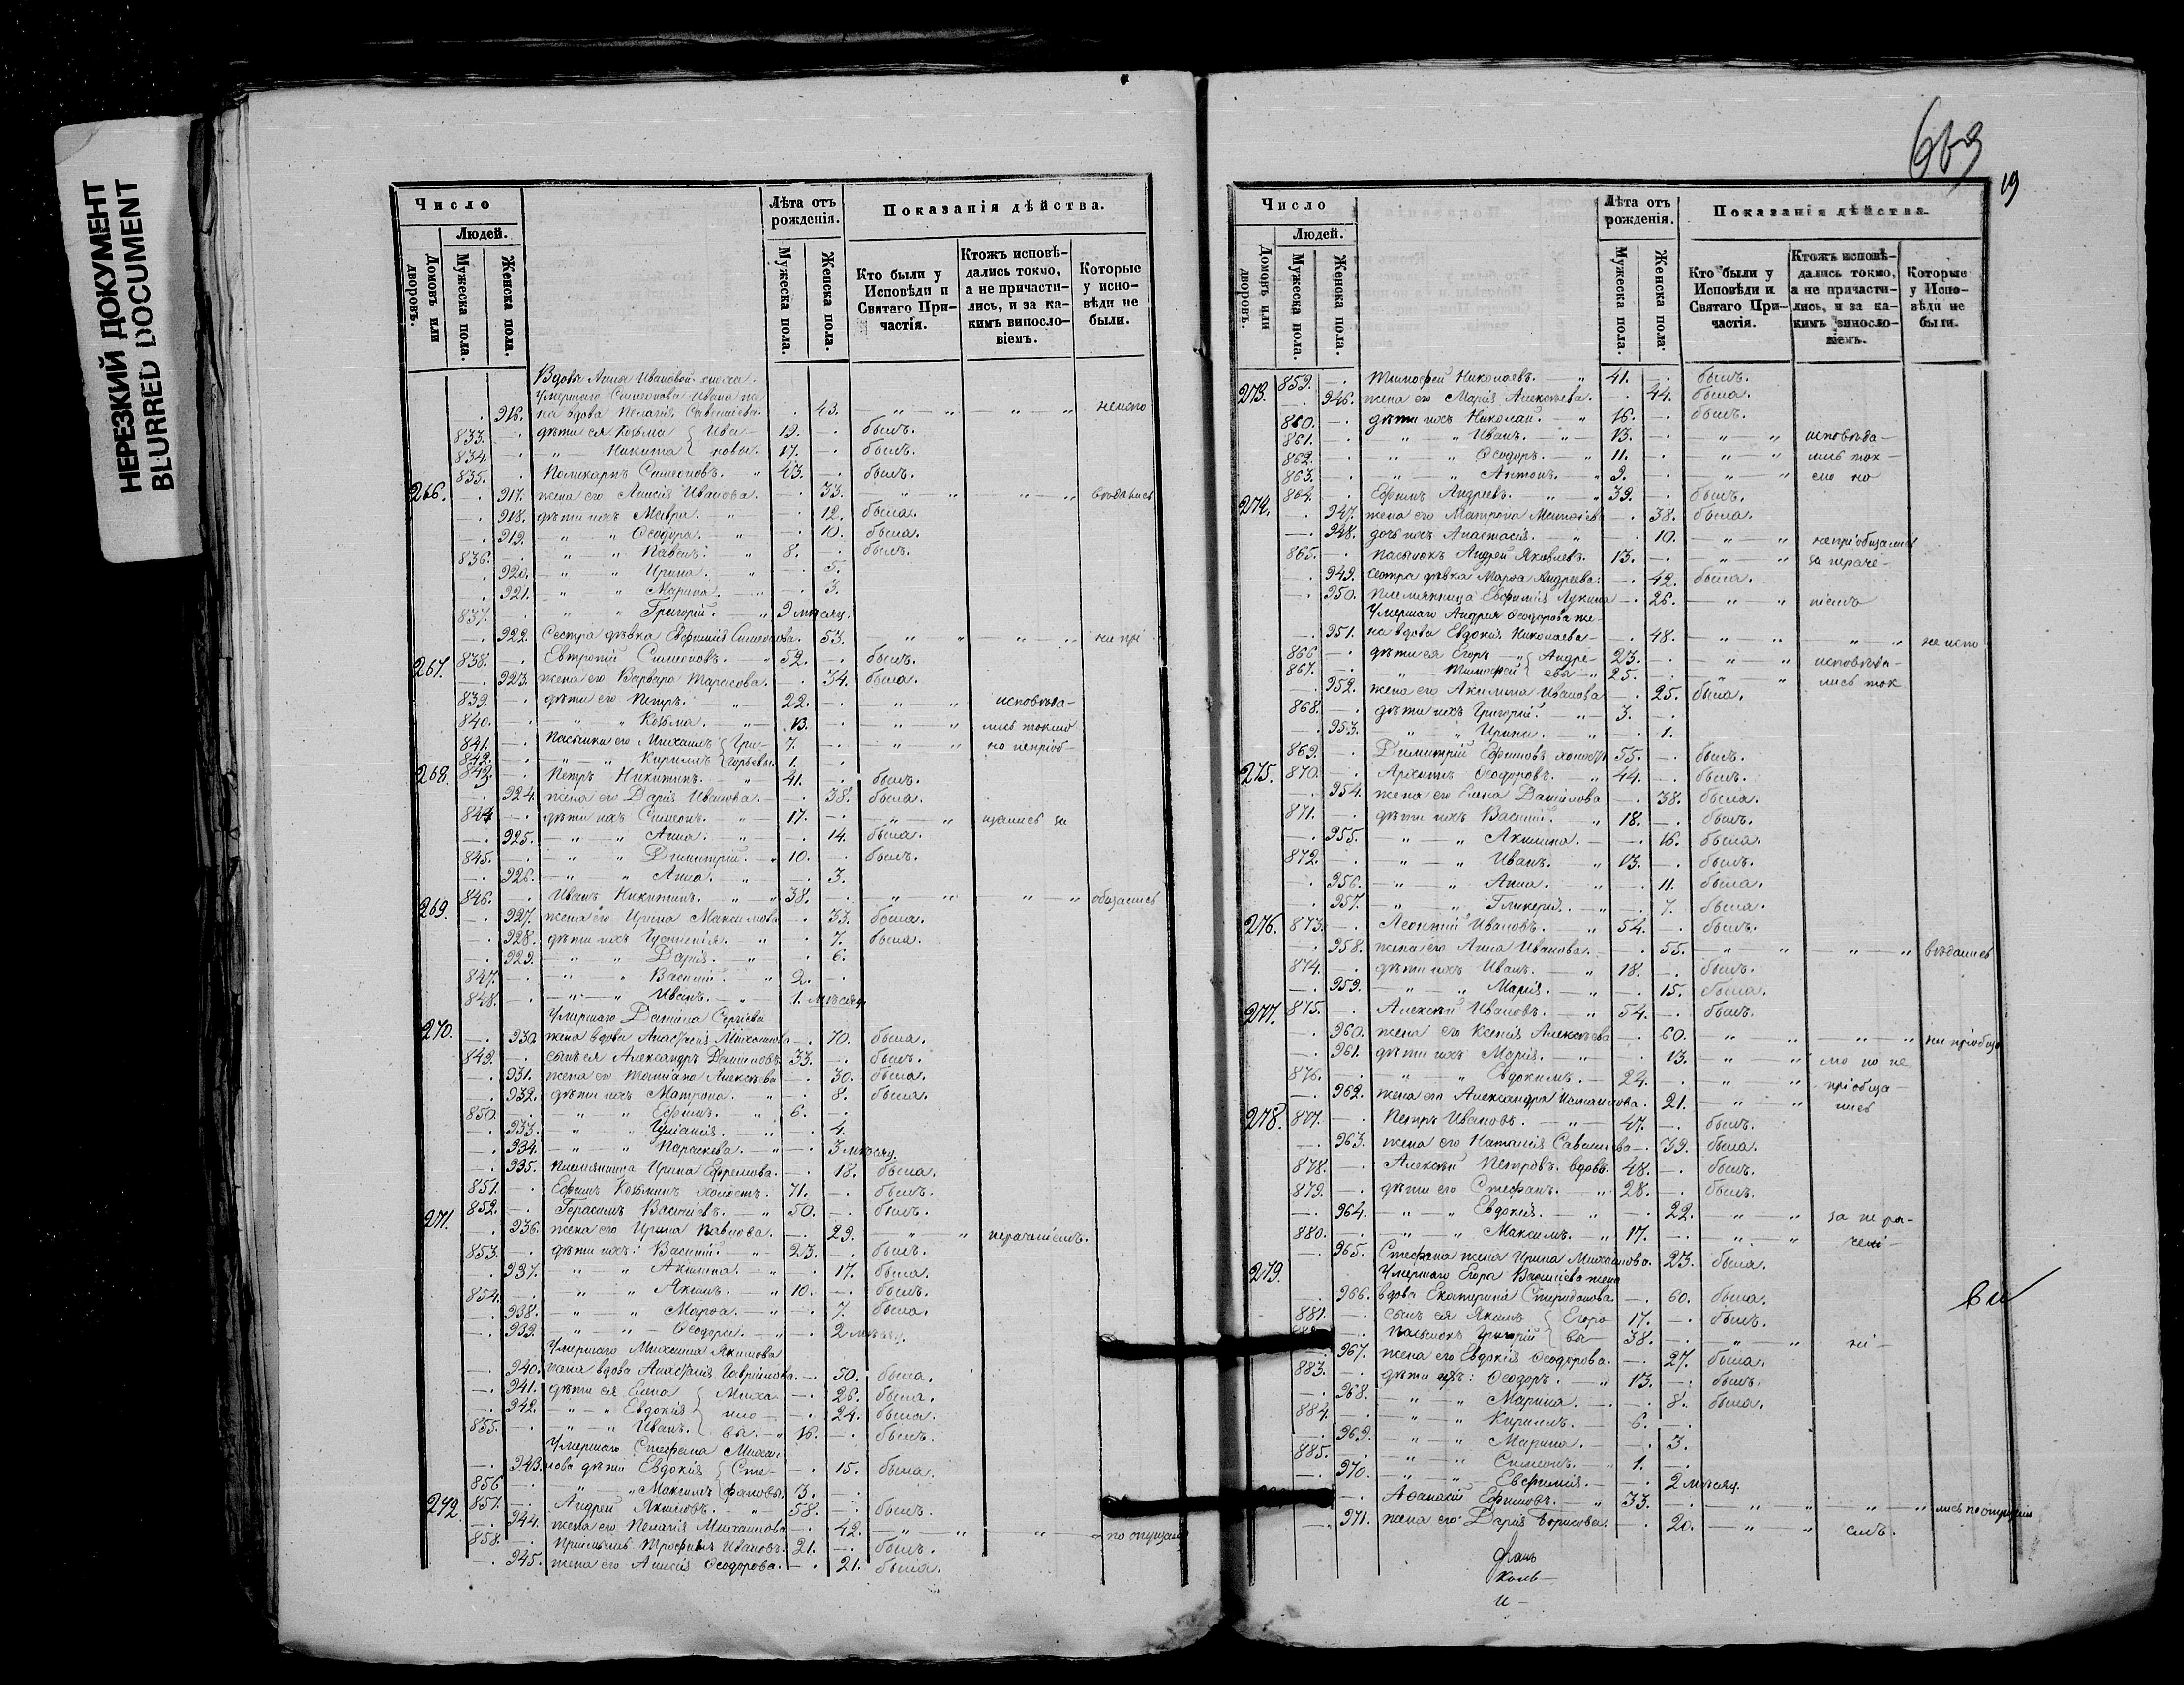 НЕРЕЗКИЙ ДОКУМЕНТ
BLURRED DOCUMENT
Число
Людей.
Домовъ или дворовъ.
Мужеска пола.
Женска пола.
Лѣта отъ рожденія.
Мужеска пола.
Женска пола.
Показанія дѣйства.
Кто были у Исповѣди и Святаго Причастія.
Ктожъ исповѣдались токмо, а не причастились, и за какимъ винословіемъ.
Которые у исповѣди не были.
Вдовы Анны Ивановой сноха
Умершаго Симеонова Ивана же
916. на вдова Пелагія Савельева. 43. неиспо
833. дѣти ея Козьма Ива- 19. былъ.
834. Никита новы. 17. былъ.
266. 835. Поликарпъ Симеоновъ. 43. былъ.
917. жена его Анисія Иванова. 33. вѣдались
918. дѣти ихъ Мавра. 12. была.
919. Ѳеодора. 10. была.
836. Павелъ. 8. былъ.
920. Ирина. 5.
921. Марина. 3.
837. Григорій. 9 мѣсяц.
922. Сестра дѣвка Евфимія Симеонова. 53. ни прі
267. 838. Евтропій Симеоновъ. 52. былъ.
923. жена его Варвара Тарасова. 34. была.
839. дѣти его Петръ. 22. исповѣда-
840. Козьма. 13. лись токмо
841. Пасынки его Михаилъ Гри- 7. но непріоб-
842. Кириллъ горьевы. 1.
268. 843. Петръ Никитинъ. 41. былъ.
924. жена его Дарія Иванова. 38. была.
844. дѣти ихъ Симеонъ. 17. щались за
925. Анна. 14. была.
845. Димитрій. 10. былъ.
926. Анна. 3.
269. 846. Иванъ Никитинъ. 38. общались
927. жена его Ирина Максимова 33. была.
928. дѣти ихъ Іустинія. 7. была.
929. Дарія. 6.
847. Василій. 2.
848. Иванъ. 1. мѣсяц.
Умершаго Даніила Сергіева
270. 930. жена вдова Анастасія Михаилова 70. была.
849. сынъ ея Александръ Даниловъ 33. былъ.
931. жена его Татіана Алексѣева 30. была.
932. дѣти ихъ Матрона. 8. была.
850. Ефимъ. 6.
933. Іуліанія. 4.
934. Параскева. 3 мѣсяц.
935. племянница Ирина Ефремова. 18. была.
851. Ефимъ Козьминъ холостъ. 71. былъ.
271. 852. Герасимъ Васильевъ. 50. былъ.
936. жена его Ирина Павлова. 29. нераченіемъ.
853. дѣти ихъ: Василій. 23. былъ.
937. Акилина. 17. была.
854. Якимъ. 10. былъ.
938. Марѳа. 7. была.
939. Ѳеодора. 2 мѣсяц.
Умершаго Михаила Якимова
940. жена вдова Анастасія Гавриилова 50. была.
941. дѣти ея Елена Миха- 26. была.
942. Евдокія ило- 24. была.
855. Иванъ. вы. 16. былъ.
Умершаго Стефана Михаи-
943. лова дѣти Евдокія Сте- 15. была.
856 Максимъ фановы. 13.
272. 857. Андрей Якимовъ. 58. былъ.
944. жена его Пелагія Михаилова 42. по опущен
858. Пріемышъ Трофимъ Ивановъ. 21. былъ.
945. жена его Анисія Ѳеодорова. 21. была.
663
19
Число
Людей.
Домовъ или дворовъ.
Мужеска пола.
Женска пола.
Лѣта отъ рожденія.
Мужеска пола.
Женска пола.
Показанія дѣйства.
Кто были у Исповѣди и Святаго Причастія.
Ктожъ исповѣдались токмо, а не причастились, и за какимъ винословіемъ.
Которые у Исповѣди не были.
273. 859. Тимофей Николаевъ. 41. былъ.
946. жена его Марія Алексѣева. 44. была.
860. дѣти ихъ Николай. 16. былъ.
861. Иванъ. 13. исповѣда-
862. Ѳеодоръ. 11. лись ток-
863. Антонъ. 9. мо но
274. 864. Ефимъ Андреевъ. 39. былъ.
947. жена его Матрона Матвіева 38. была.
948. дочь ихъ Анастасія. 10. непріобщались
865. пасынокъ Андрей Яковлевъ. 13. за нераче-
949. Сестра дѣвка Марѳа Андреева. 42. была.
950. племянница Евфимія Лукина 26. ніемъ
Умершаго Андрея Ѳеодорова же-
951. на вдова Евдокія Николаева 48. не испо
866 дѣти ея Егоръ Андре- 23. исповѣда-
867. Тимофей евы 25. лись ток
952. жена его Акилина Иванова 25. была.
868. дѣти ихъ Григорій. 3.
953. Ирина. 1.
869. Димитрій Ефимовъ холостъ 55. былъ.
275. 870. Архипъ Ѳеодоровъ. 44. былъ.
954. жена его Елена Данилова 38. была.
871. дѣти ихъ Василій. 18. былъ.
955. Акилина. 16. была.
872. Иванъ. 13. былъ.
956. Анна. 11. была.
957. Гликерія. 7. была.
276. 873. Леонтій Ивановъ. 54. былъ.
958. жена его Анна Иванова. 55. вѣдались
874. дѣти ихъ Иванъ. 18. былъ.
959. Марія. 15. была.
277. 875. Алексѣй Ивановъ. 54. былъ.
960. жена его Ксенія Алексѣева 60. ни пріобщ
961. дѣти ихъ Марія. 13. мо но не
876. Евдокимъ. 24. пріобща-
962. жена его Александра 21. лись
278. 877. Петръ Ивановъ. 47. былъ.
963. жена его Наталія Савельева 39. была.
878. Алексѣй Петровъ вдовъ. 48. былъ.
879. дѣти его Стефанъ. 28. былъ.
964. Евдокія. 22. за нера-
880. Максимъ. 17. чені-
965. Стефана жена Ирина Михаилова. 23. была.
279. Умершаго Егора Васильева жена
966. вдова Екатерина Спиридонова 60. была.
881. сынъ ея Якимъ Егоро 17. былъ.
пасынокъ Григорій вы 38.
967. жена его Евдокія Ѳеодорова. 27. была.
883. дѣти ихъ: Ѳеодоръ. 13. былъ.
968. Марина. 8. была.
884. Кириллъ. 6.
969. Марина. 3.
885. Симеонъ. 1.
970. Евфимія. 2 мѣсяц.
Аѳанасій Ефимовъ. 33. лись по опущенію
971. жена его Дарія Борисова. 20. емъ.